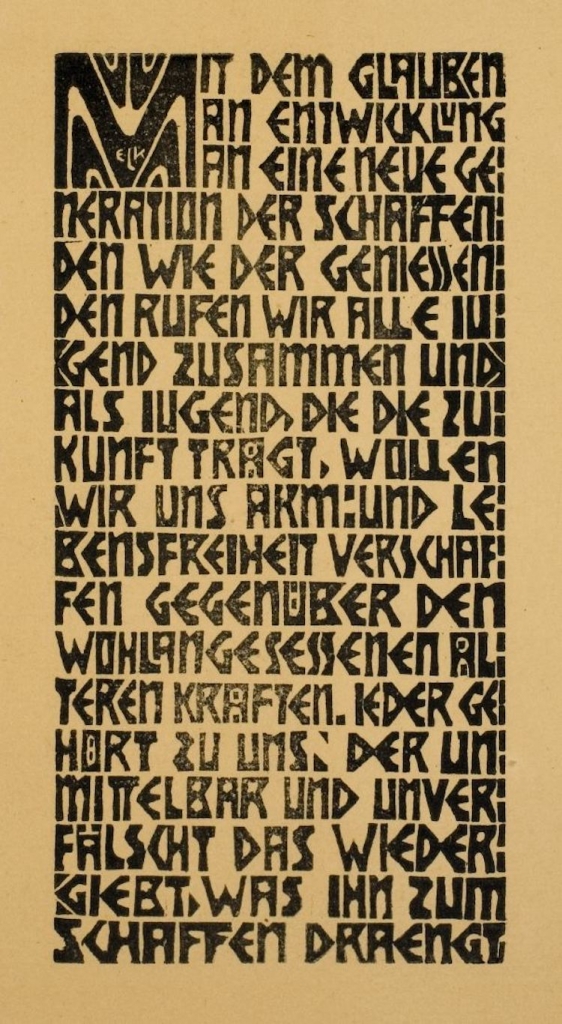 MIT DEM GLAUBEN
AN ENTWICKLUNG
ELK
AN EINE NEUE GE:
NERATION DER SCHAFFEN:
DEN WIE DER GENIESSEN:
DEN RUFEN WIR ALLE IU:
GEND ZUSAMMEN UND
ALS IUGEND, DIE DIE ZU:
KUNFT TRÄGT, WOLLEN
WIR UNS ARM:UND LE:
BENSFREIHEIT VERSCHAF:
FEN GEGENÜBER DEN
WOHLANGESESSENEN ÄL:
TEREN KRÄFTEN. IEDER GE
HÖRT ZU UNS, DER UN:
MITTELBAR UND UNVER:
FÄLSCHT DAS WIEDER:
GIEBT, WAS IHN ZUM
SCHAFFEN DRAENGT